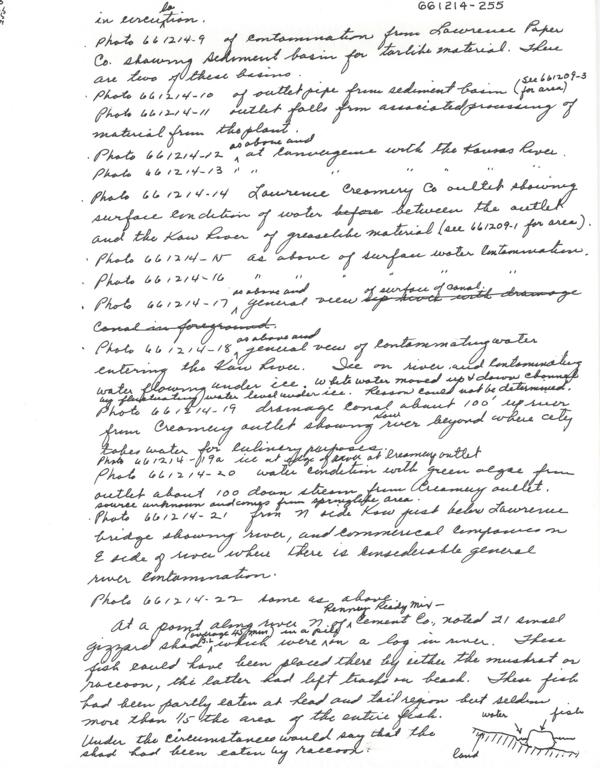 661214-255
in circulation.
. Photo 661214-9 of contamination from Lawrence Paper
Co. showing sediment basin for tarlike material. There
are two of these basins.
. Photo 661214-10 of outlet pipe from sediment basin (see 661209-3 for area)
Photo 661214-11 outlet falls from associated processing of
material from the plant.
. Photo 661214-12 as above and at convergence with the Kansas River.
. Photo 661214-13 " " " " " "
. Photo 661214-14 Lawrence Creamery Co outlet showing
surface condition of water before between the outlet
and the Kaw River of greaselike material (see 661209-1 for area).
. Photo 661214-15 as above of surface water contamination.
. Photo 661214-16 " " " " " "
. Photo 661214-17 as above and general view of surface of canal. drainage
canal in foreground.
. Photo 661214-18 as above and general view of contaminating water
entering the Kaw River. Ice on river and contaminating
water flowing under ice. White water moved up & down channel
by fluctuating water level under ice. Reason could not be determined.
Photo 661214-19 drainage canal about 100' up river
from Creamery outlet showing Kaw river beyond where city
takes water for culinary purposes.
Photo 661214-19a ice at edge of river at Creamery outlet
Photo 661214-20 water condition with green algae from
outlet about 100 down stream from Creamery outlet.
source unknown and comes from springlike area.
. Photo 661214-21 from N side Kaw just below Lawrence
bridge showing river, and commerical companies on
E side of river where there is considerable general
river contamination.
Photo 661214-22 same as above.
At a point along river N. of Penney Ready Mix - Cement Co., noted 21 small
gizzard shad, which were in a pile on a log in river. These
fish could have been placed there by either the muskrat or
raccoon, the latter had left tracks on beach. These fish
had been partly eaten at head and tail region but seldom
more than 1/5 the area of the entire fish.
Under the circumstances would say that the
shad had been eaten by raccoon.
water
fish
land